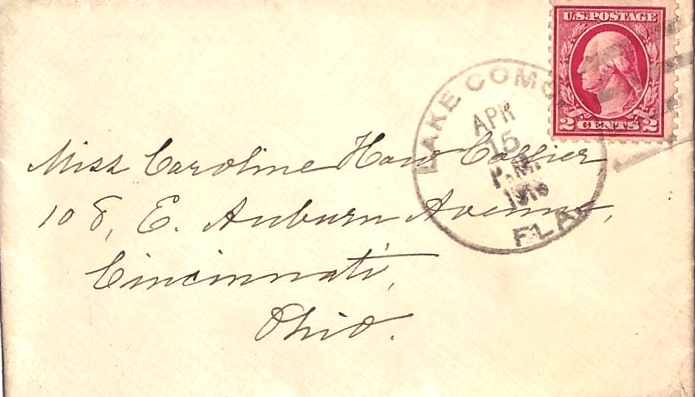 U.S. POSTAGE
2 CENTS 2
LAKE COMO
APR
15
P.M.
FLA.
Miss Caroline
108, E. Auburn Avenue,
Cincinnati,
Ohio.